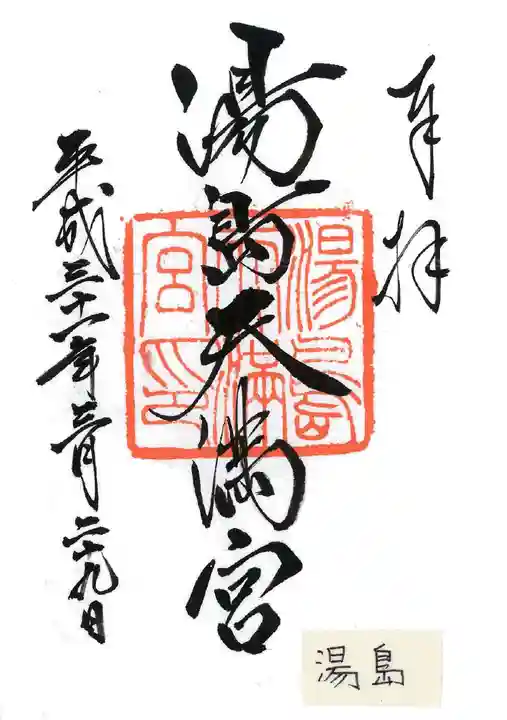 奉拝
湯島天満宮
湯島天満宮印
平成三十一年三月二十九日
湯島